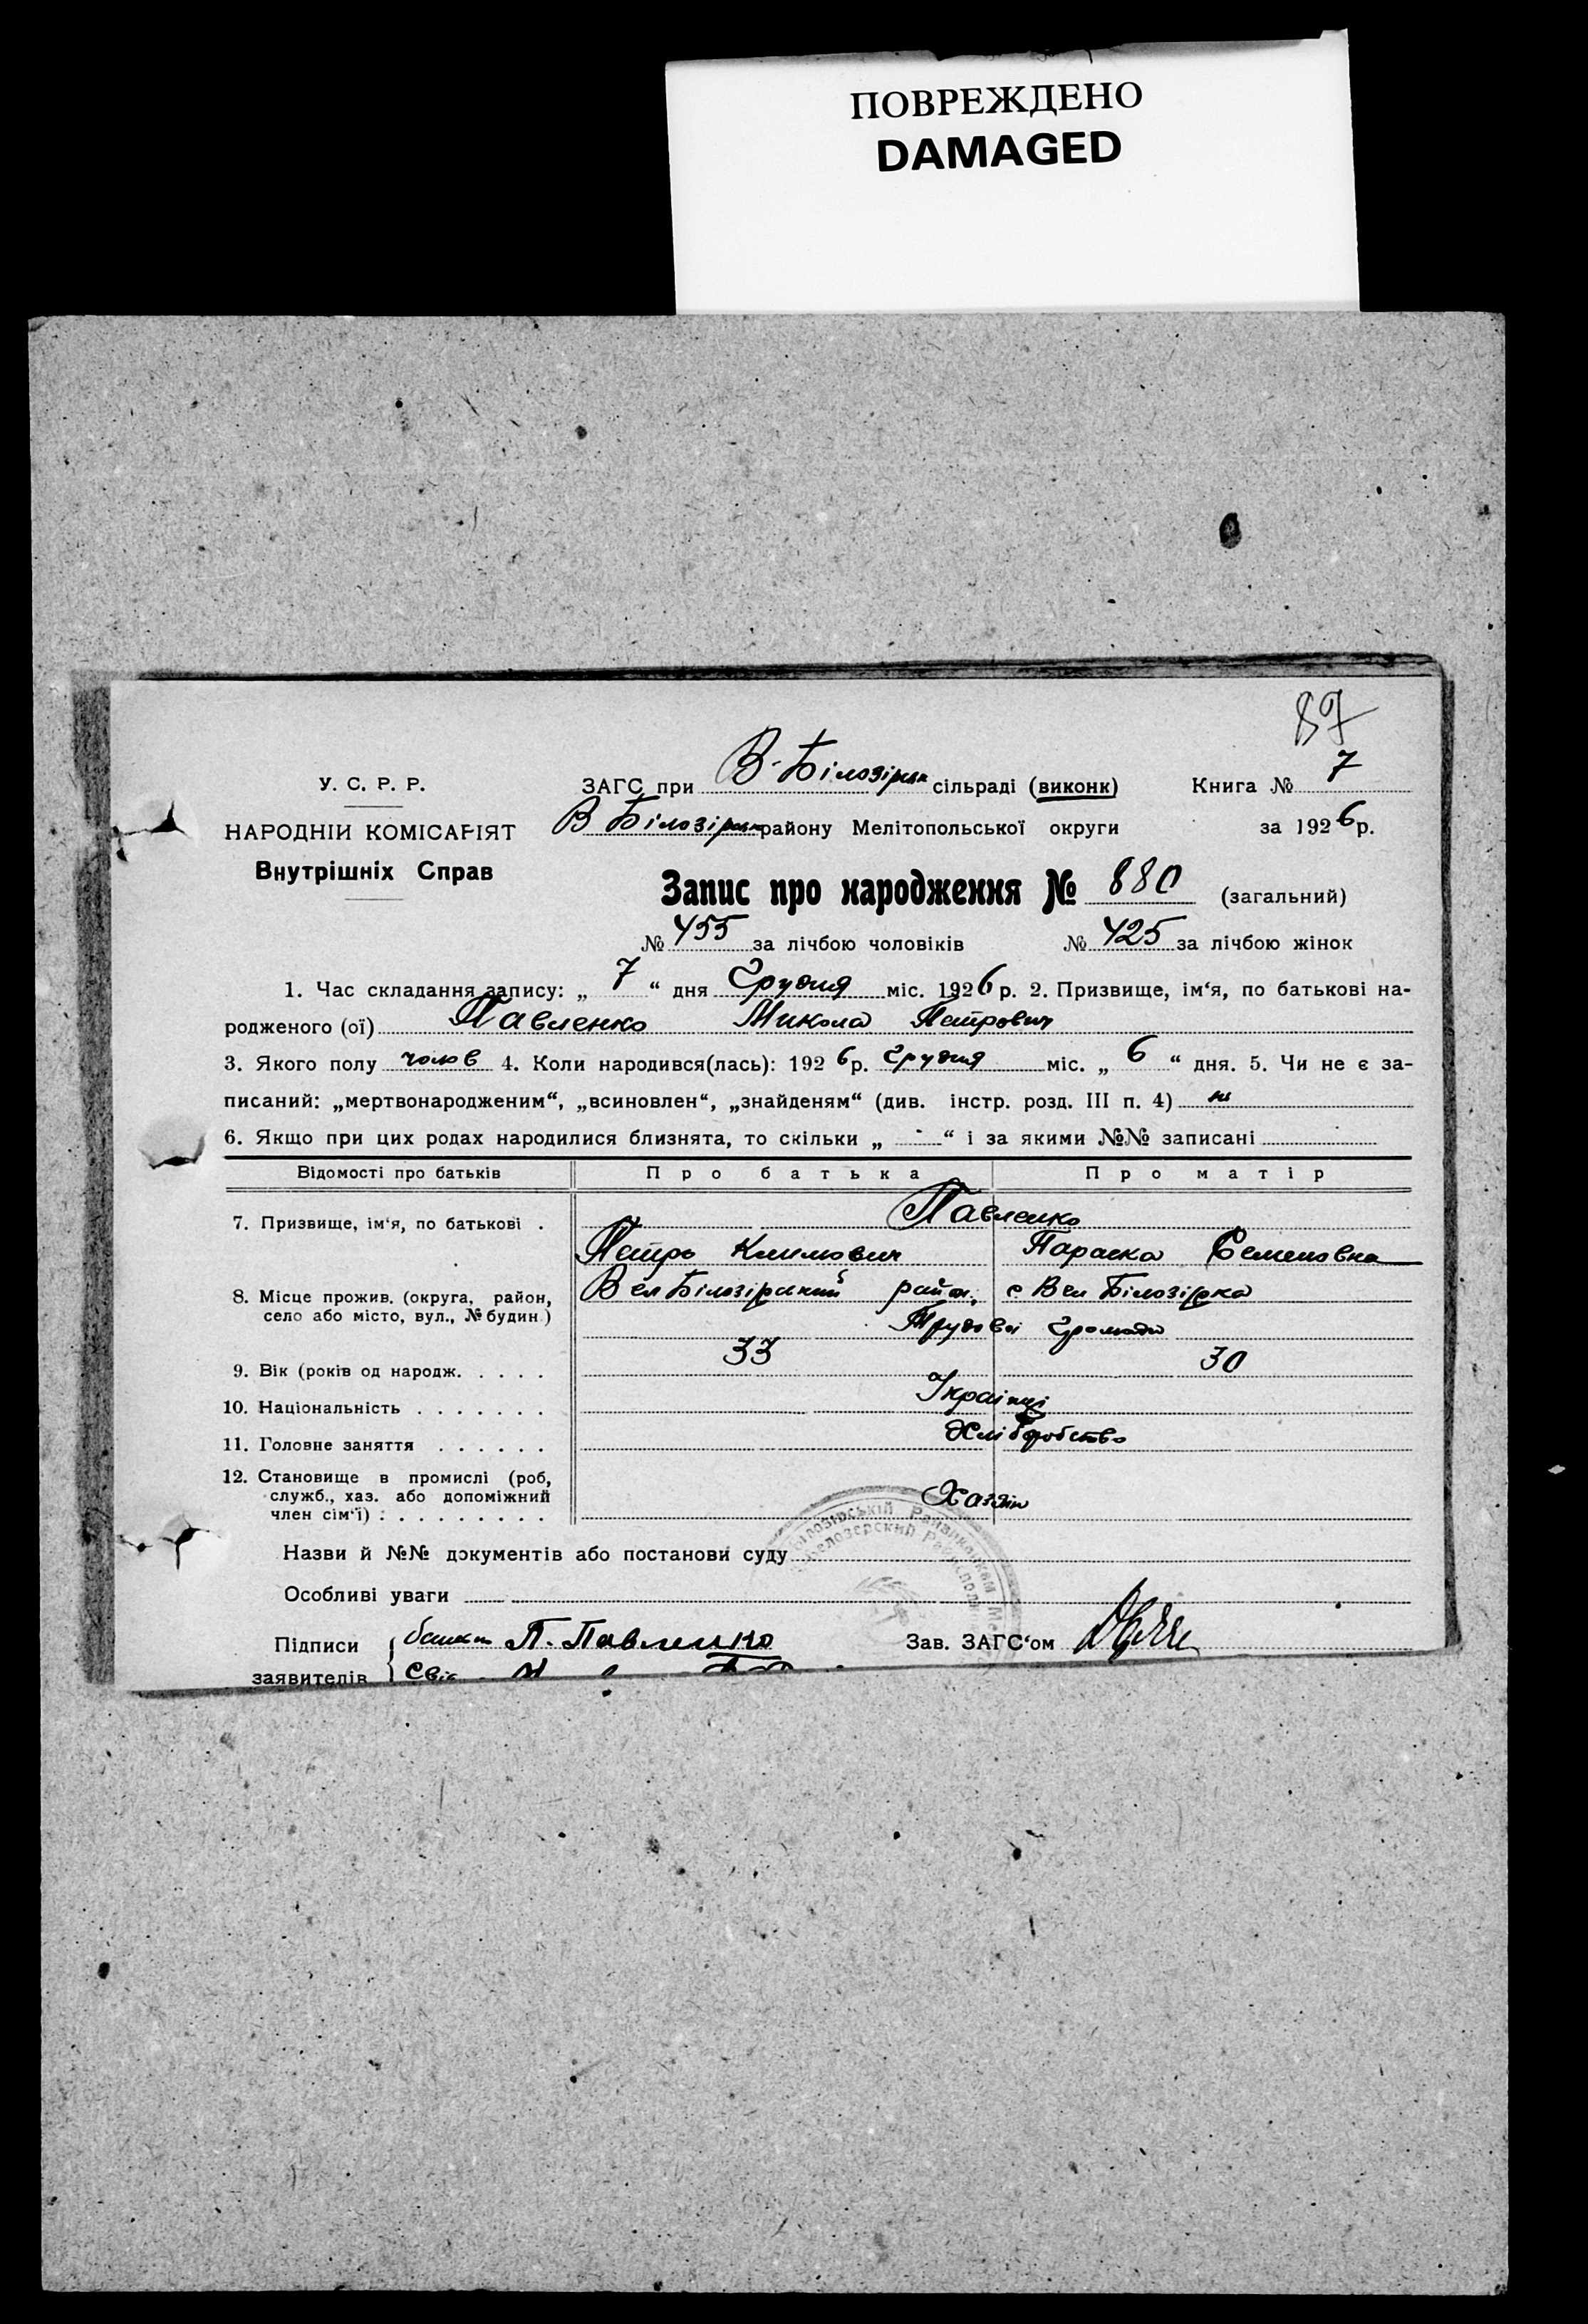 ПОВРЕЖДЕНО
DAMAGED
87
У. С. Р. Р.
НАРОДНІИ КОМІСАРІЯТ
Внутрішніх Справ
ЗАГС при В-Білозірск сільраді (виконк) Книга № 7
В Білозірск району Мелітопольської округи за 1926 р.
Запис про народження № 880 (загальний)
№ 455 за лічбою чоловіків № 425 за лічбою жінок
1. Час складання запису: „ 7 “ дня Грудня міс. 1926 р. 2. Призвище, ім‘я, по батькові на-
родженого (ої) Павленко Микола Петрович
3. Якого полу чолов 4. Коли народився(лась): 1926 р. Грудня міс. „ 6 “ дня. 5. Чи не є за-
писаний: „мертвонародженим“, „всиновлен“, „знайденям“ (див. інстр. розд. III п. 4) ні
6. Якщо при цих родах народилися близнята, то скільки „ - “ і за якими №№ записані
Відомості про батьків Про батька Про матір
7. Призвище, ім‘я, по батькові . Павленко
Петро Климович Параска Семеновна
8. Місце прожив. (округа, район, Вел Білозірський район, с Вел Білозірка
село або місто, вул., № будин.) Трудової Громади
9. Вік (років од народж. . . . . 33 30
10. Національність . . . . . . . Українці
11. Головне заняття . . . . . . Хліборобство
12. Становище в промислі (роб,
служб., хаз. або допоміжний Хазяін
член сім‘ї) : . . . . . . . . .
Назви й №№ документів або постанови суду
Особливі уваги
Підписи П. Павленко Зав. ЗАГС‘ом
заявителів